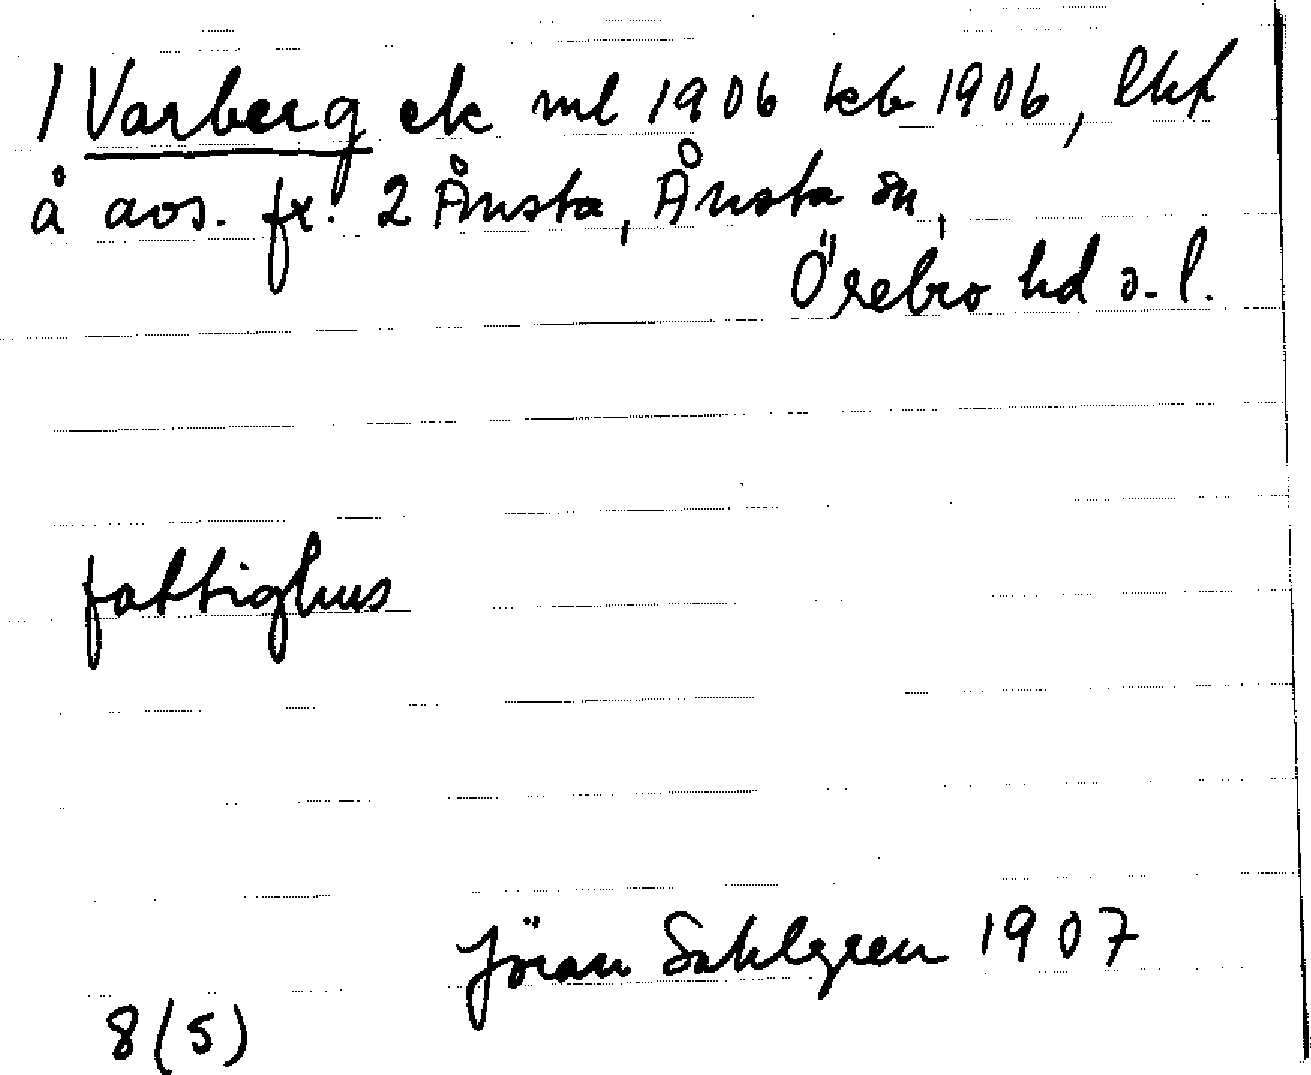 1 Varberg ek ml 1906 kb 1906, lhf
å avs. fr. 2 Ånsta, Ånsta sn,
Örebro hd o. l.
fattighus
Jöran Sahlgren 1907
8(5)